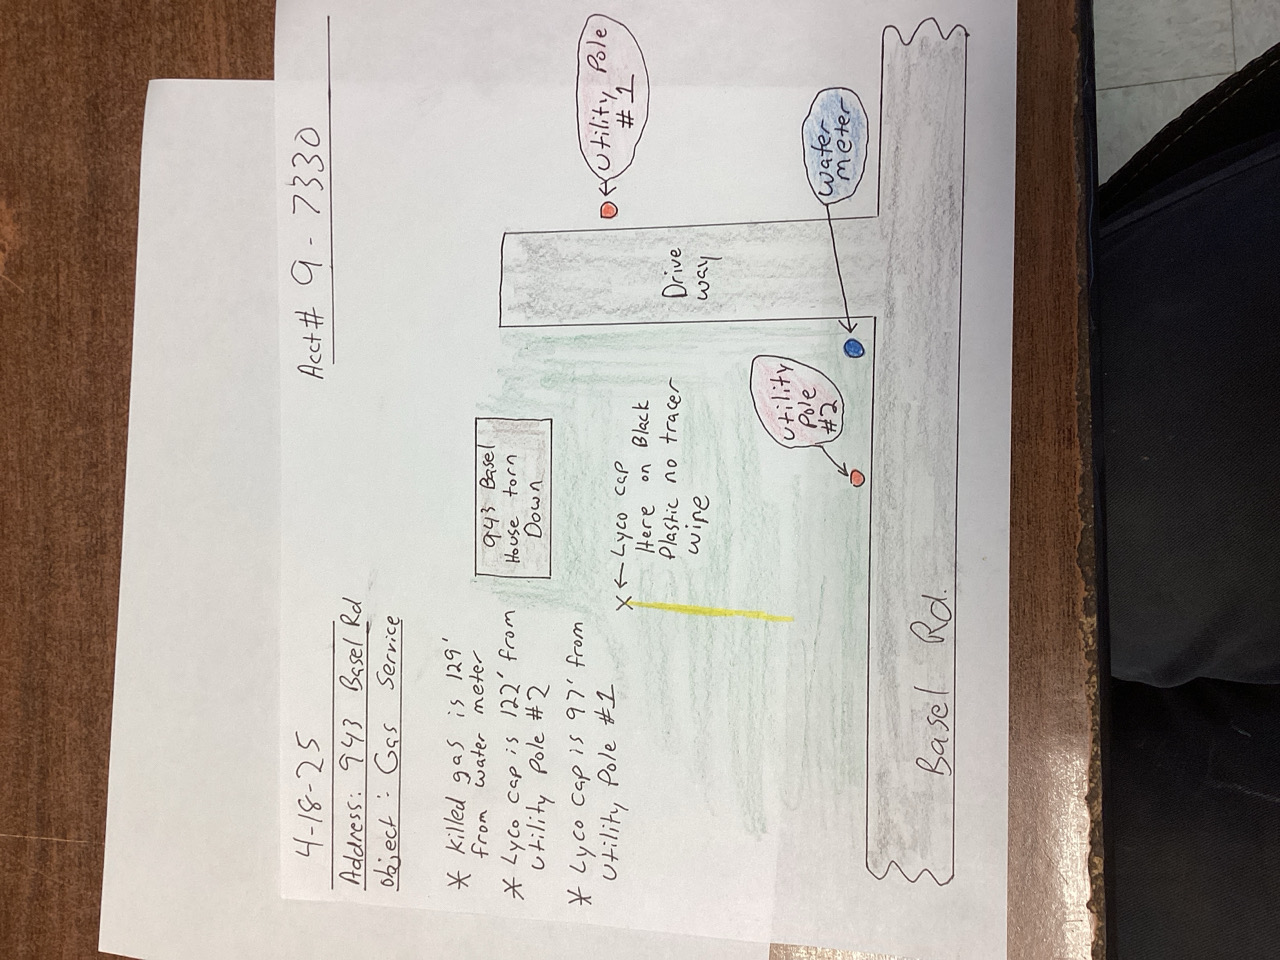 4-18-25
Acct# 9-7330
Address: 943 Basel Rd
Object: Gas Service
* Killed gas is 129'
from water meter
* Lyco cap is 122' from
Utility Pole #2
* Lyco cap is 97' from
Utility Pole #1
943 Basel
House torn
Down
X ← Lyco cap
Here on Black
Plastic no tracer
wire
Utility Pole
#1
Drive
way
Utility
Pole
#2
Water
meter
Basel Rd.